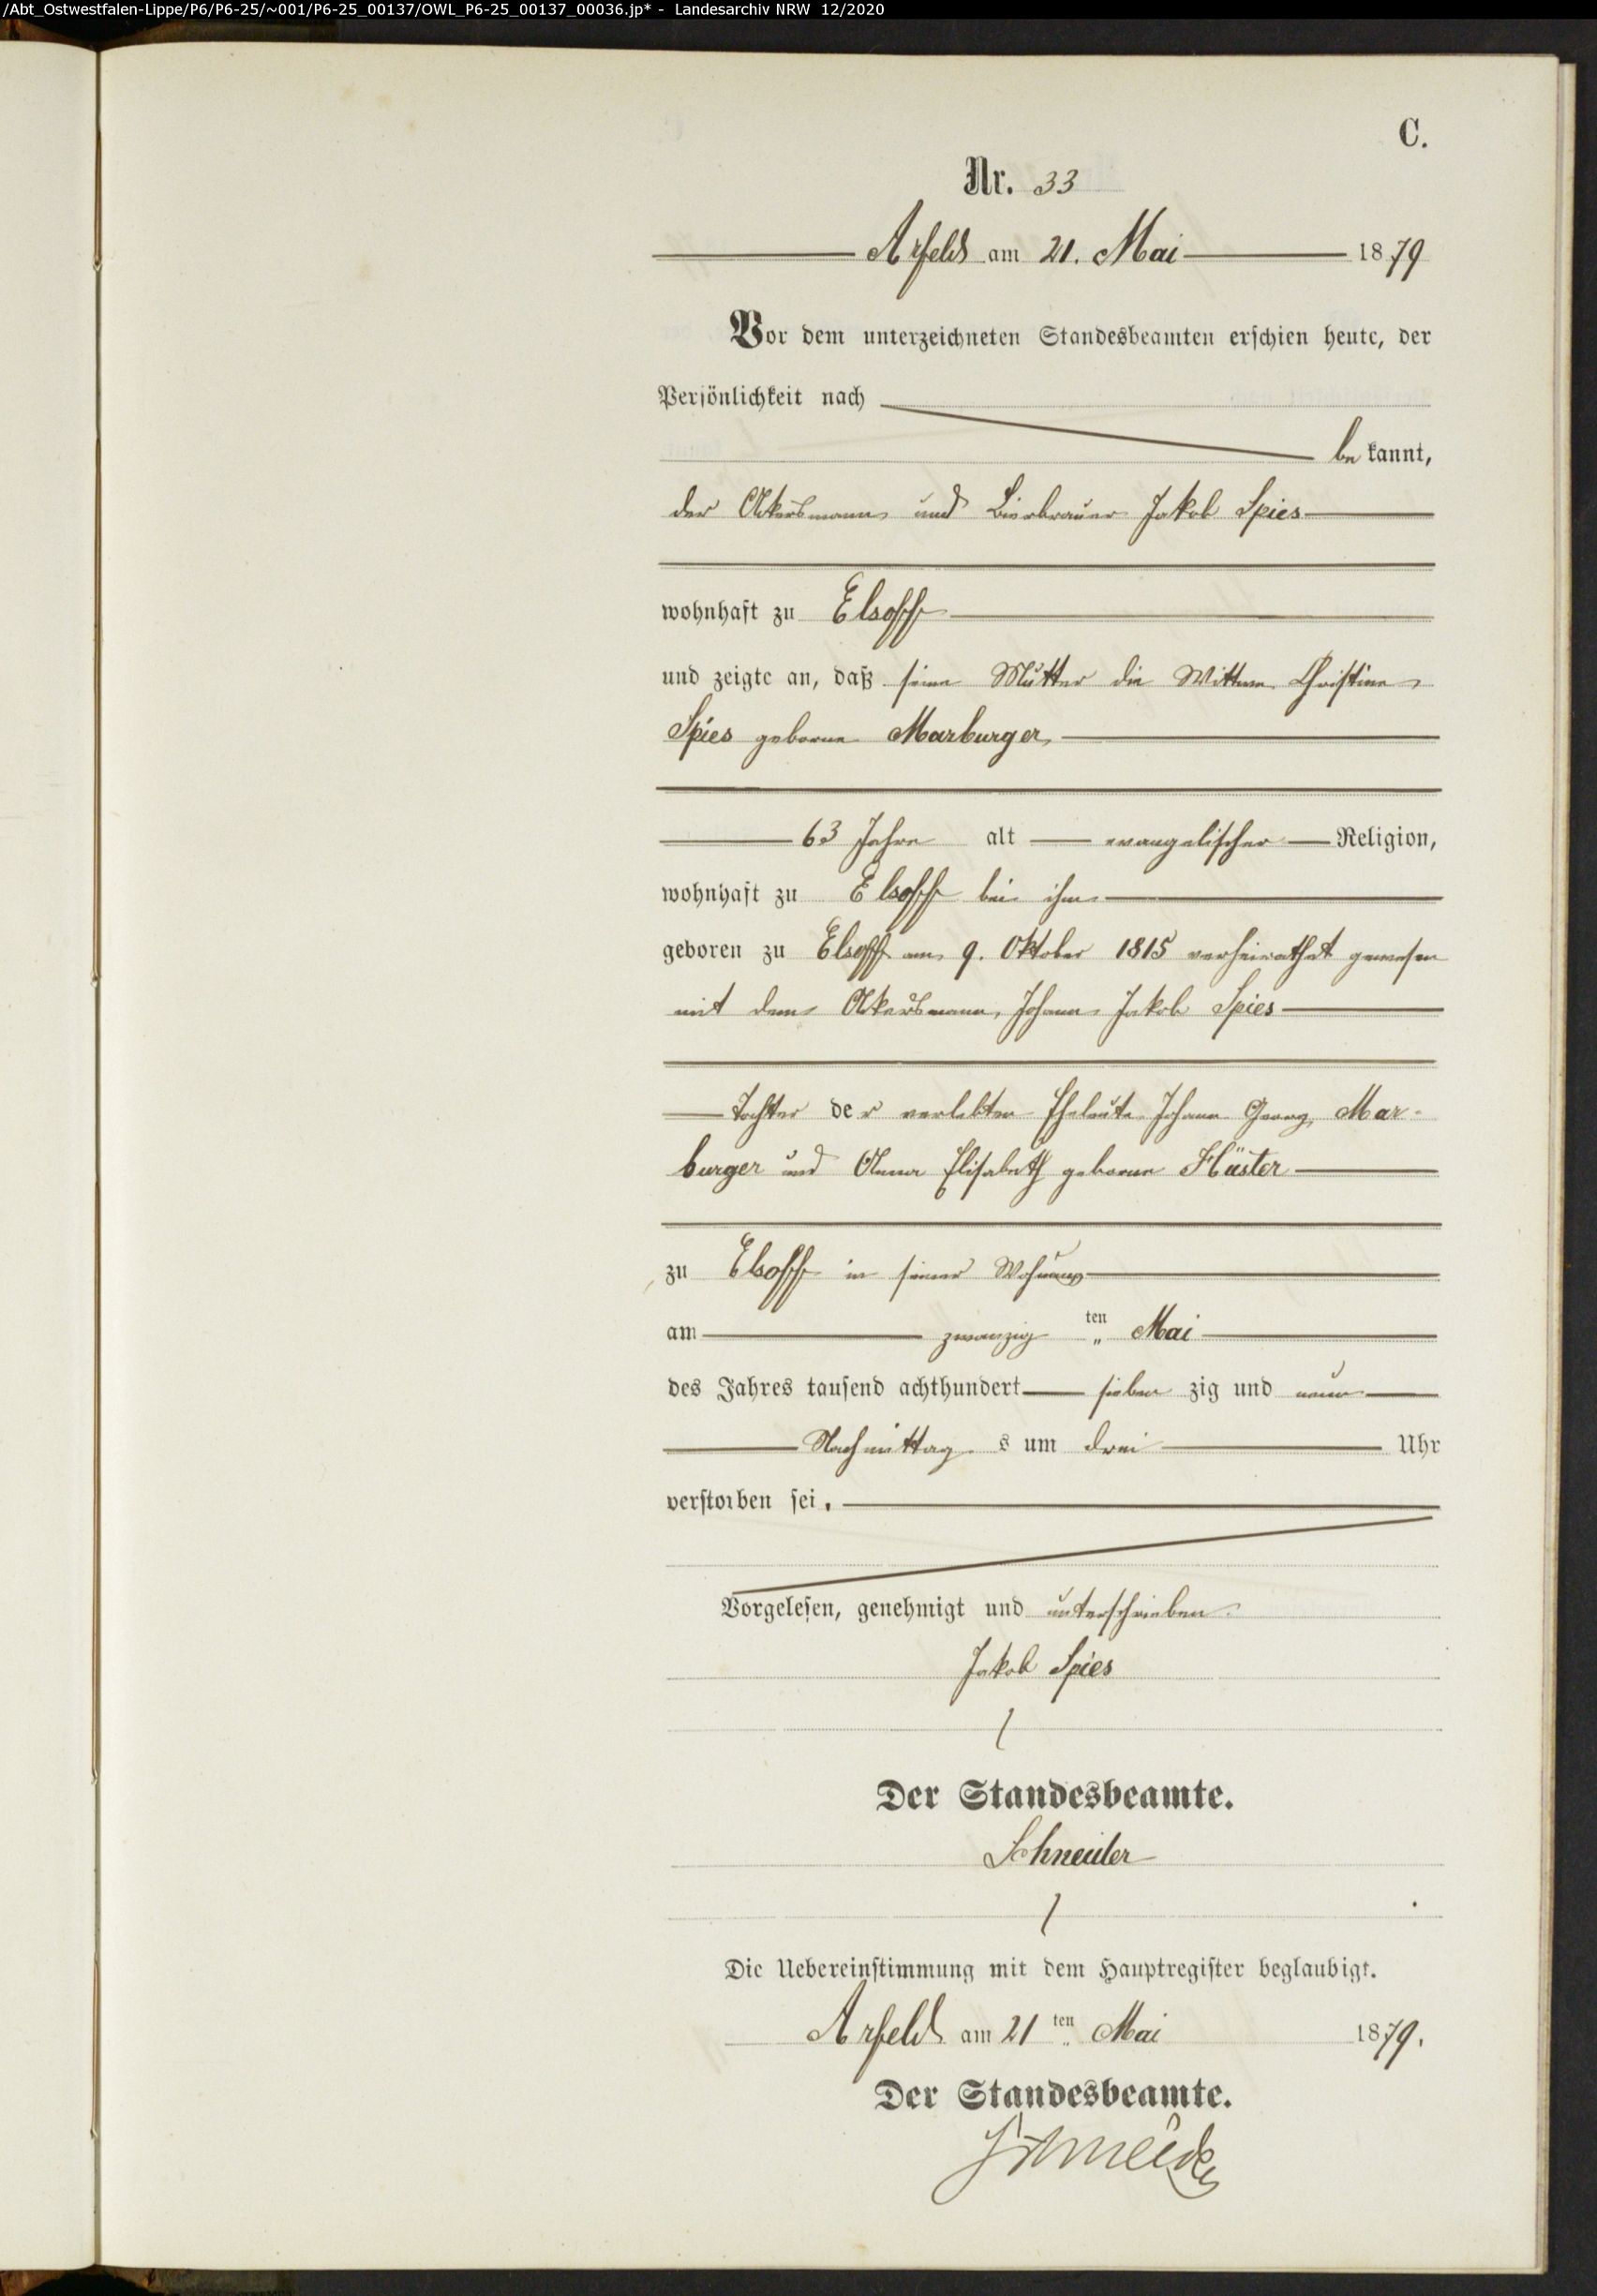 /Abt_Ostwestfalen-Lippe/P6/P6-25/~001/P6-25_00137/OWL_P6-25_00137_00036.jp* - Landesarchiv NRW 12/2020
C.
Nr. 33
Arfeld am 21. Mai 1879
Vor dem unterzeichneten Standesbeamten erschien heute, der
Persönlichkeit nach
bekannt,
der Ackersmann und Bierbrauer Jakob Spies
wohnhaft zu Elsoff
und zeigte an, daß seine Mutter die Wittwe Christine
Spies geborne Marburger,
63 Jahre alt evangelischer Religion,
wohnhaft zu Elsoff bei ihm
geboren zu Elsoff am 9. Oktober 1815 verheirathet gewesen
mit dem Ackersmann, Johann Jakob Spies
Tochter der verlebten Eheleute Johann Georg Mar-
burger und Anna Elisabeth geborne Hüster
zu Elsoff in seiner Wohnung
am zwanzig ten Mai
des Jahres tausend achthundert siebenzig und neun
Nachmittags um drei Uhr
verstorben sei.
Vorgelesen, genehmigt und unterschrieben
Jakob Spies
Der Standesbeamte.
Schneider
Die Uebereinstimmung mit dem Hauptregister beglaubigt.
Arfeld am 21ten Mai 1879.
Der Standesbeamte.
Schneider